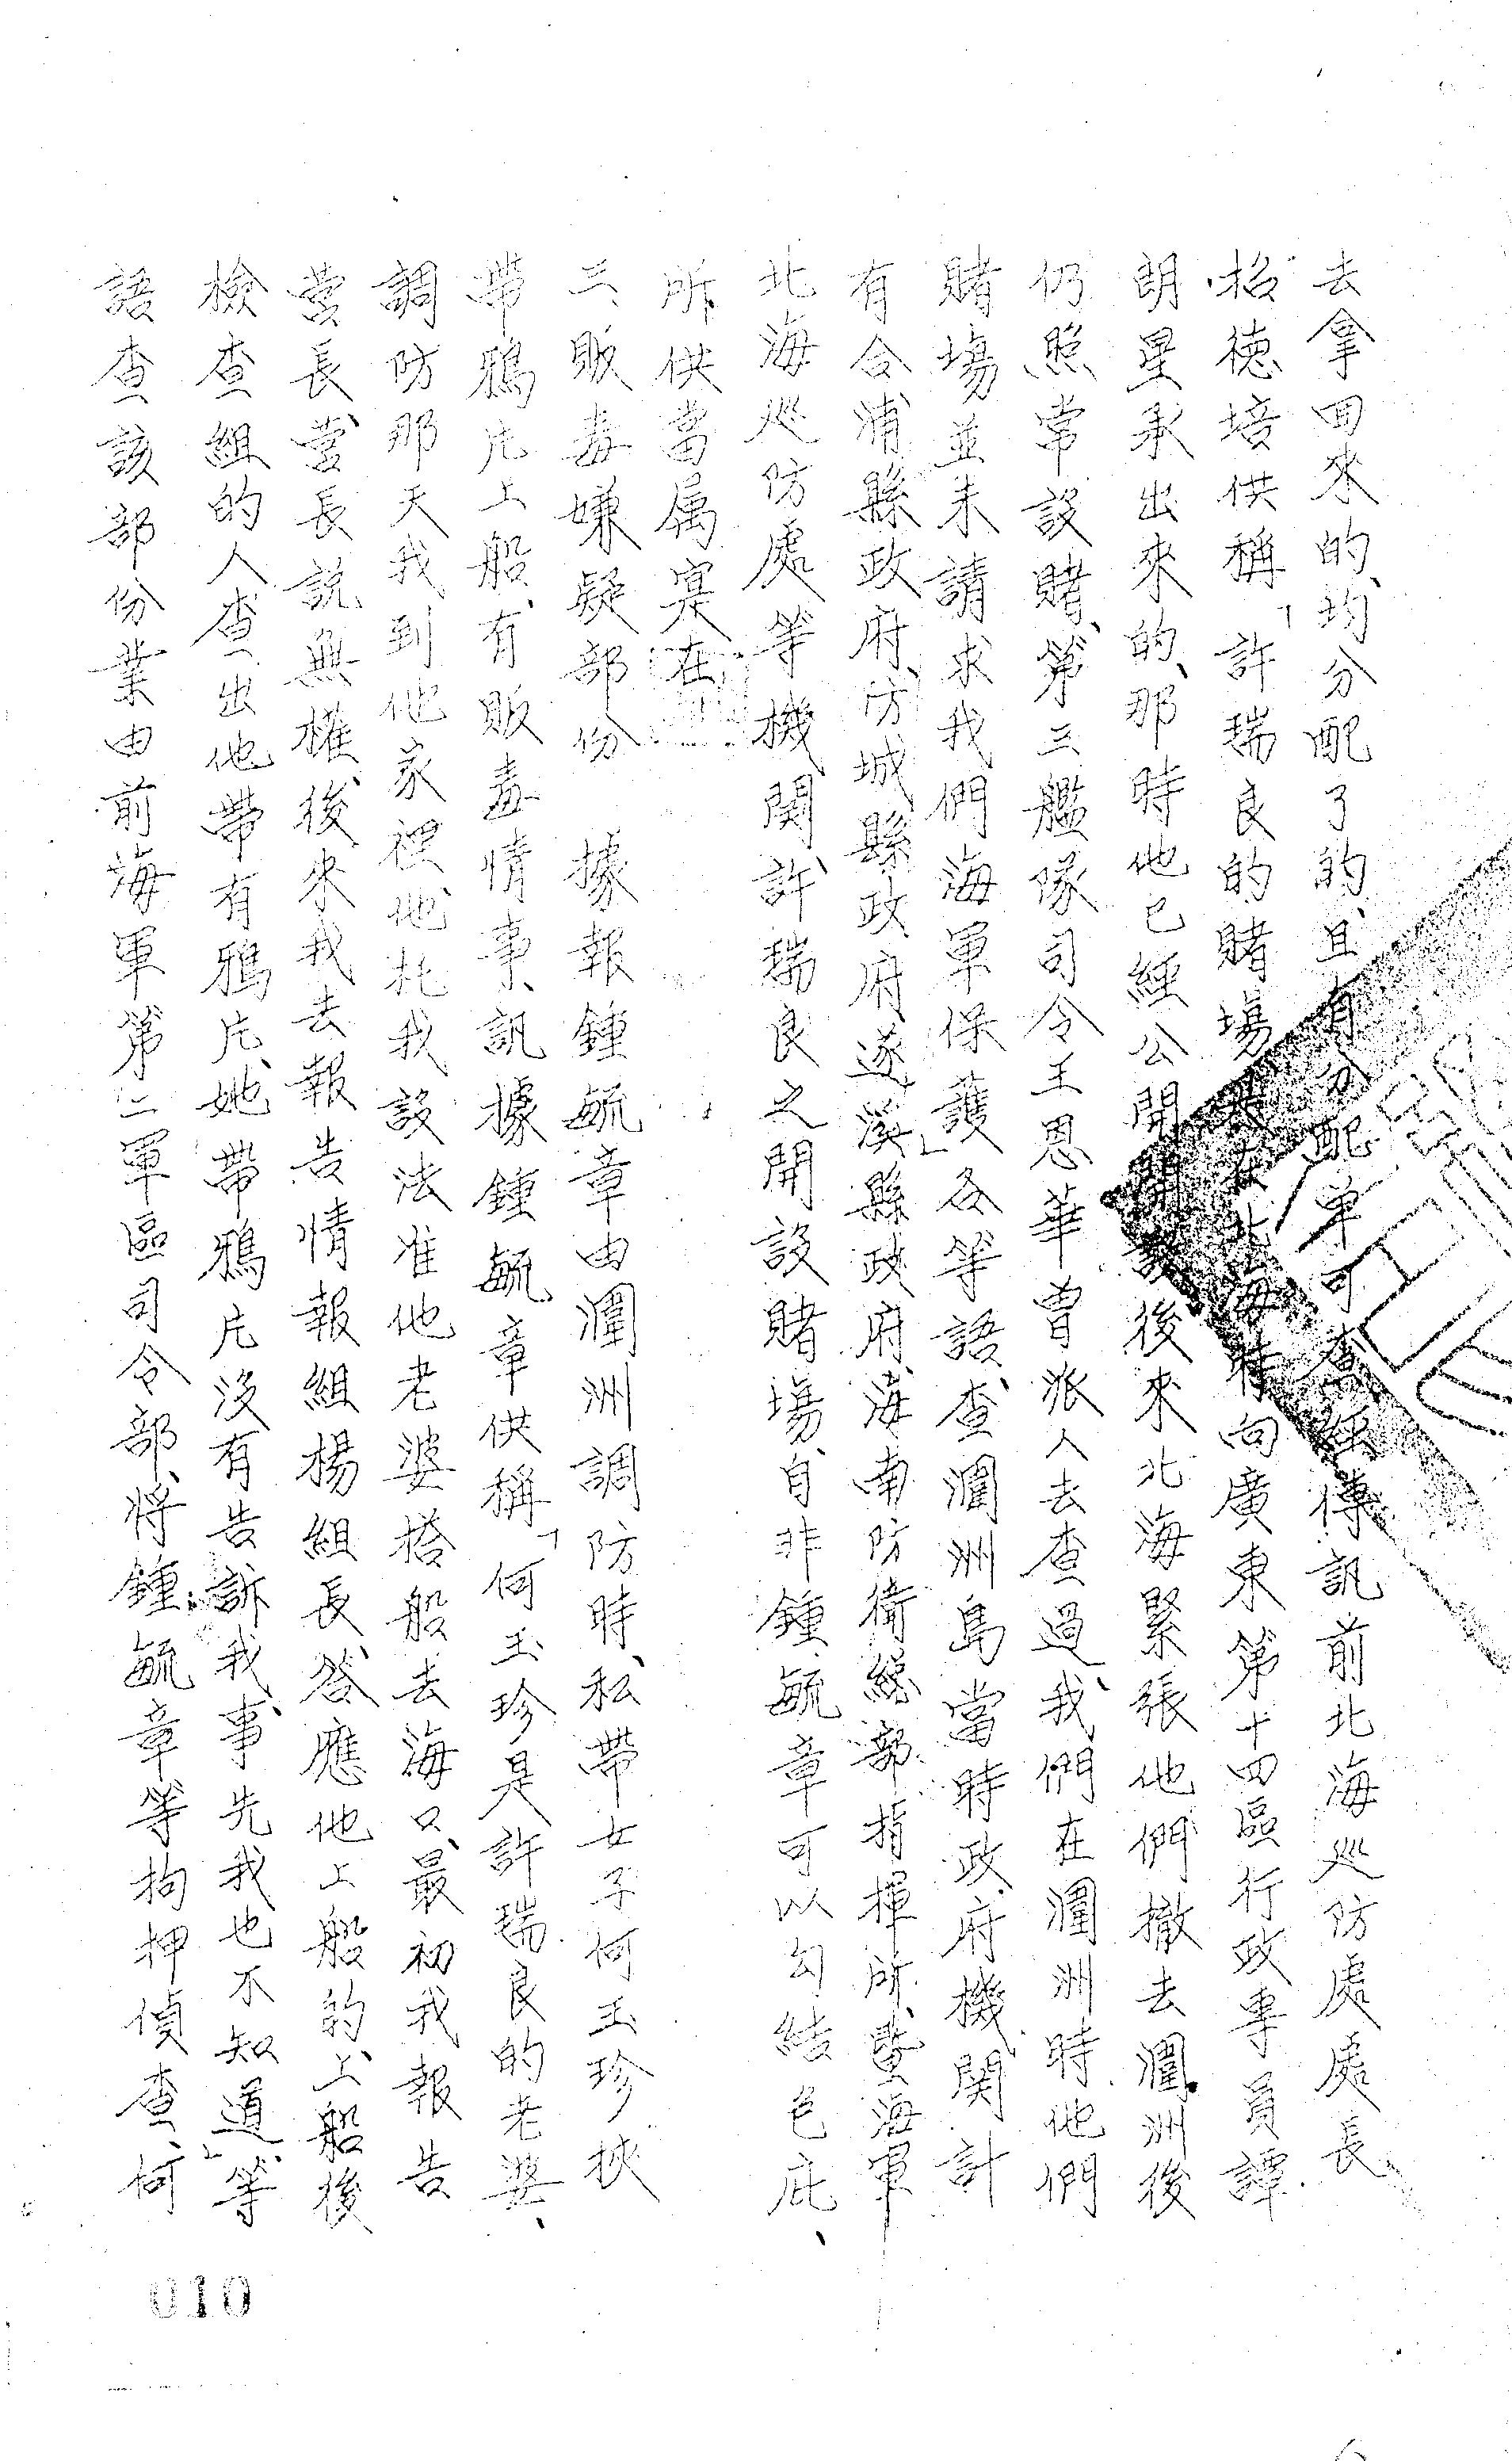 去拿回來的、均分配了的、且有分配單可查經傳訊前北海巡防處處長
招德培供稱「許瑞良的賭場是在北海時向廣東第十四區行政專員譚
朗星承出來的、那時他已經公開開設後來北海緊張他們撤去潿洲後
仍照常設賭、第三艦隊司令王恩華曾派人去查過、我們在潿洲時他們
賭場並未請求我們海軍保護」各等語、查潿洲島當時政府機関計
有合浦縣政府、防城縣政府遂溪縣政府、海南防衛總部指揮所、暨海軍
北海巡防處等機関、許瑞良之開設賭場、自非鍾毓章可以勾結包庇、
所供當属寔在
三、販毒嫌疑部份 據報鍾毓章由潿洲調防時、私帶女子何玉珍挾
帶鴉片上船、有販毒情事、訊據鍾毓章供稱「何玉珍是許瑞良的老婆、
調防那天我到他家裡、他托我設法准他老婆搭船去海口、最初我報告
營長、營長説無權、後來我去報告情報組楊組長、答應他上船的、上船後
檢查組的人查出他帶有鴉片、她帶鴉片沒有告訴我、事先我也不知道」等
語查該部份業由前海軍第二軍區司令部、將鍾毓章等拘押偵查、何
010